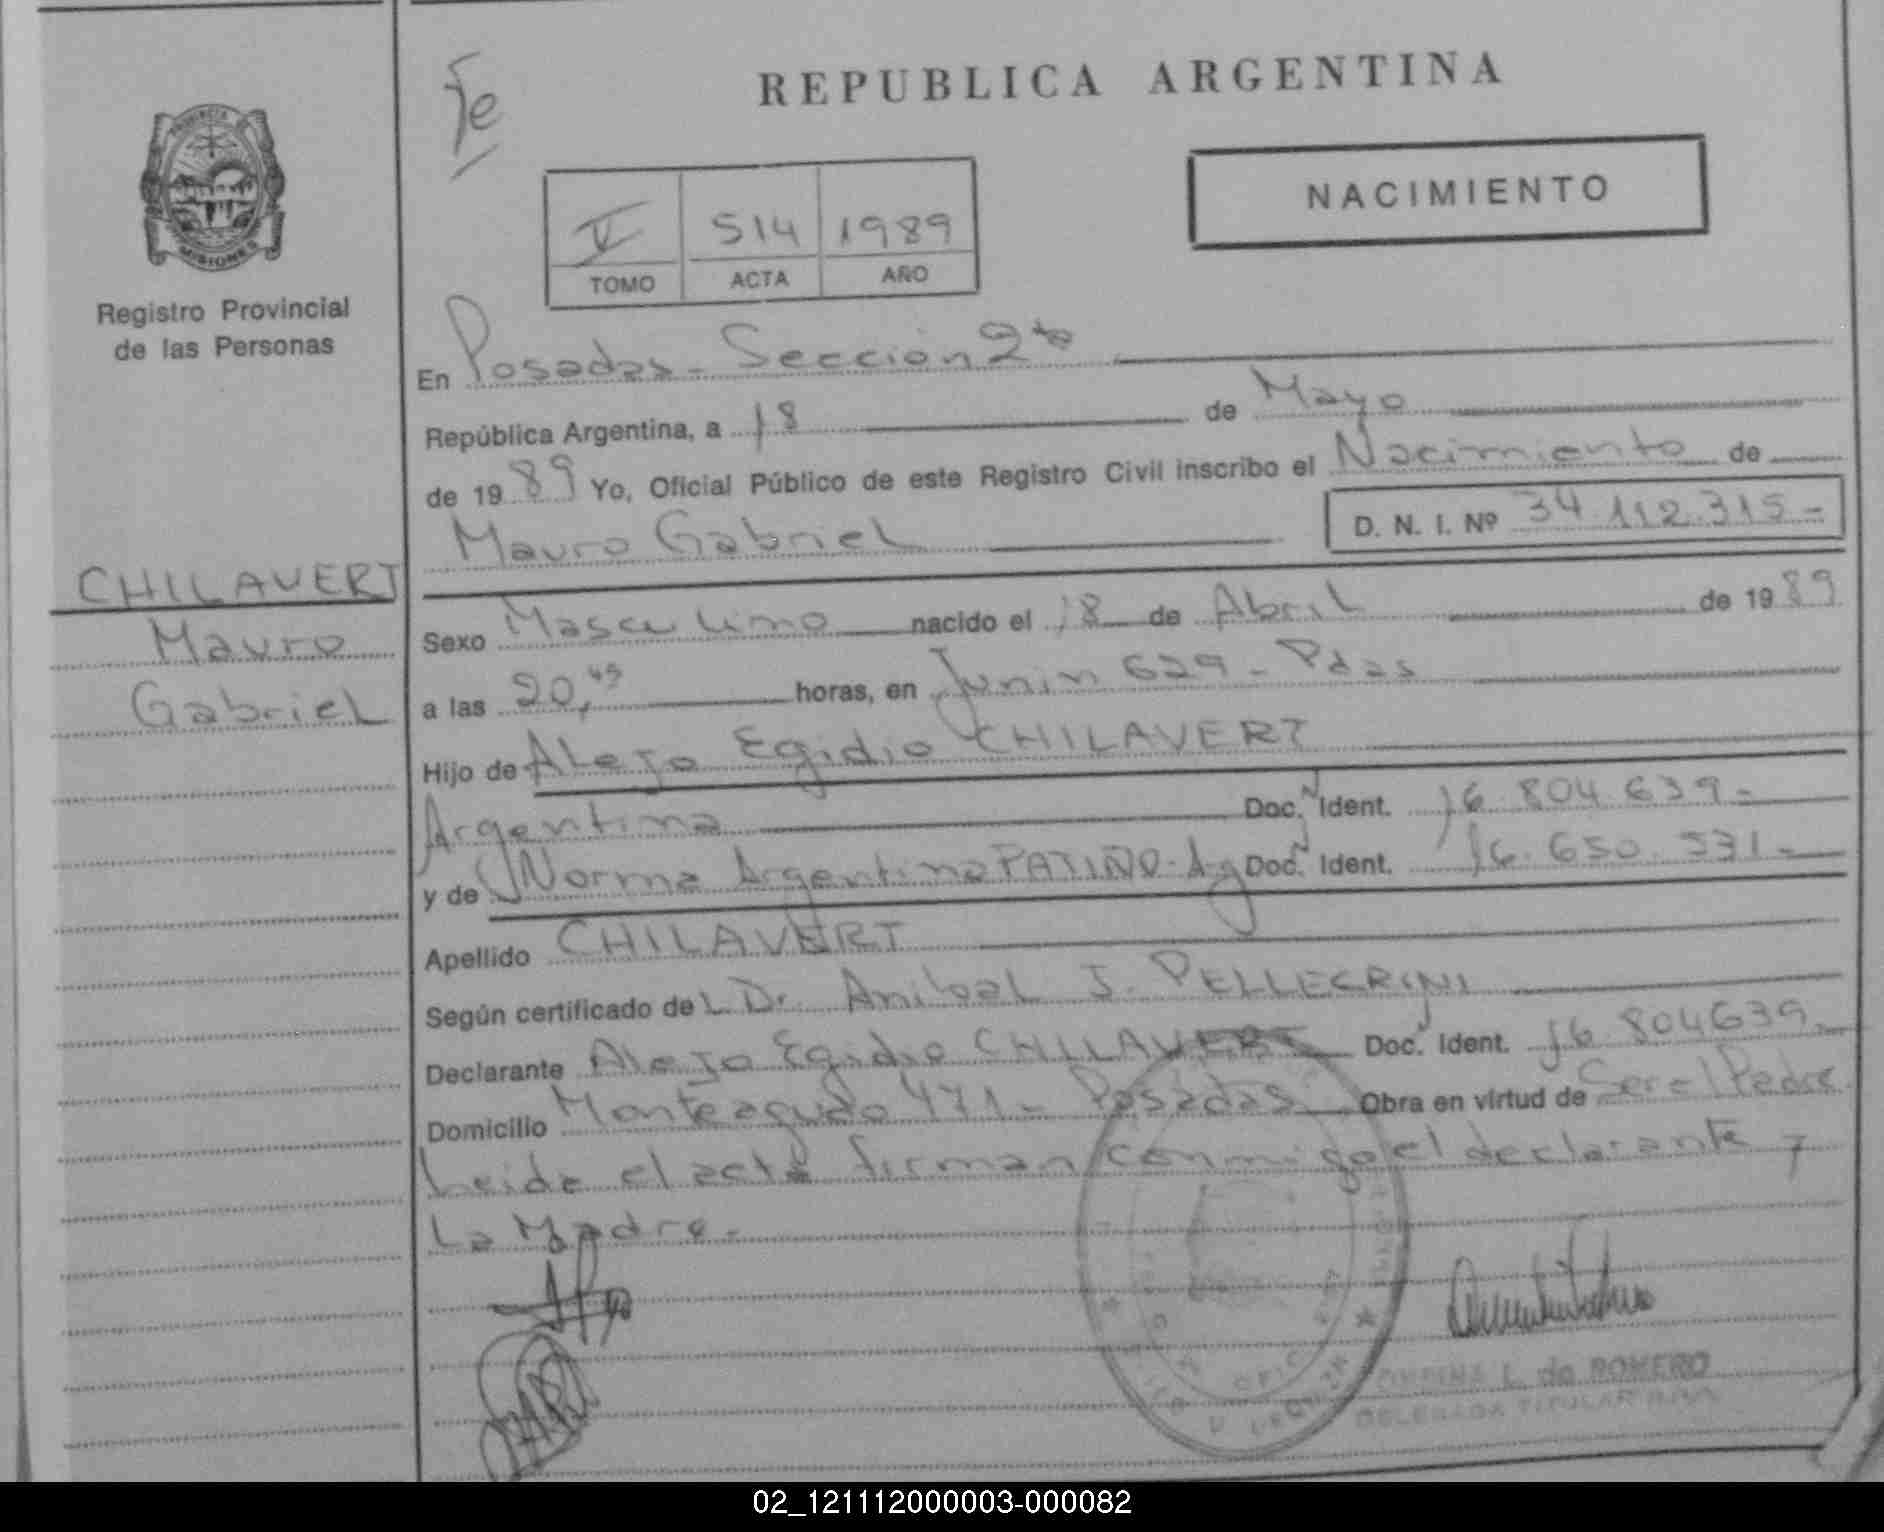 Fe
REPUBLICA ARGENTINA
PROVINCIA
MISIONES
Registro Provincial
de las Personas
NACIMIENTO
V 514 1989
TOMO ACTA AÑO
En Posadas - Sección 2da
República Argentina, a 18 de Mayo
de 19 89 Yo, Oficial Público de este Registro Civil inscribo el Nacimiento de
Mauro Gabriel
D. N. I. Nº 34.112.315-
CHILAVERT
Mauro
Gabriel
Sexo Masculino nacido el 18 de Abril de 19 89
a las 20,45 horas, en Junin 629 - Pdas
Hijo de Alejo Egidio CHILAVERT
Argentina Doc. N Ident. 16.804.639-
y de Norma Argentina PATIÑO - Ag Doc. N Ident. 16.650.531-
Apellido CHILAVERT
Según certificado de L Dr. Anibal J. PELLEGRINI
Declarante Alejo Egidio CHILAVERT Doc. Ident. 16 804639-
Domicilio Monteagudo 471 - Posadas Obra en virtud de Ser el Padre.
Leida el acta firman conmigo el declarante y
La Madre -
L. de ROMERO
DELEGADA TITULAR
02_121112000003-000082